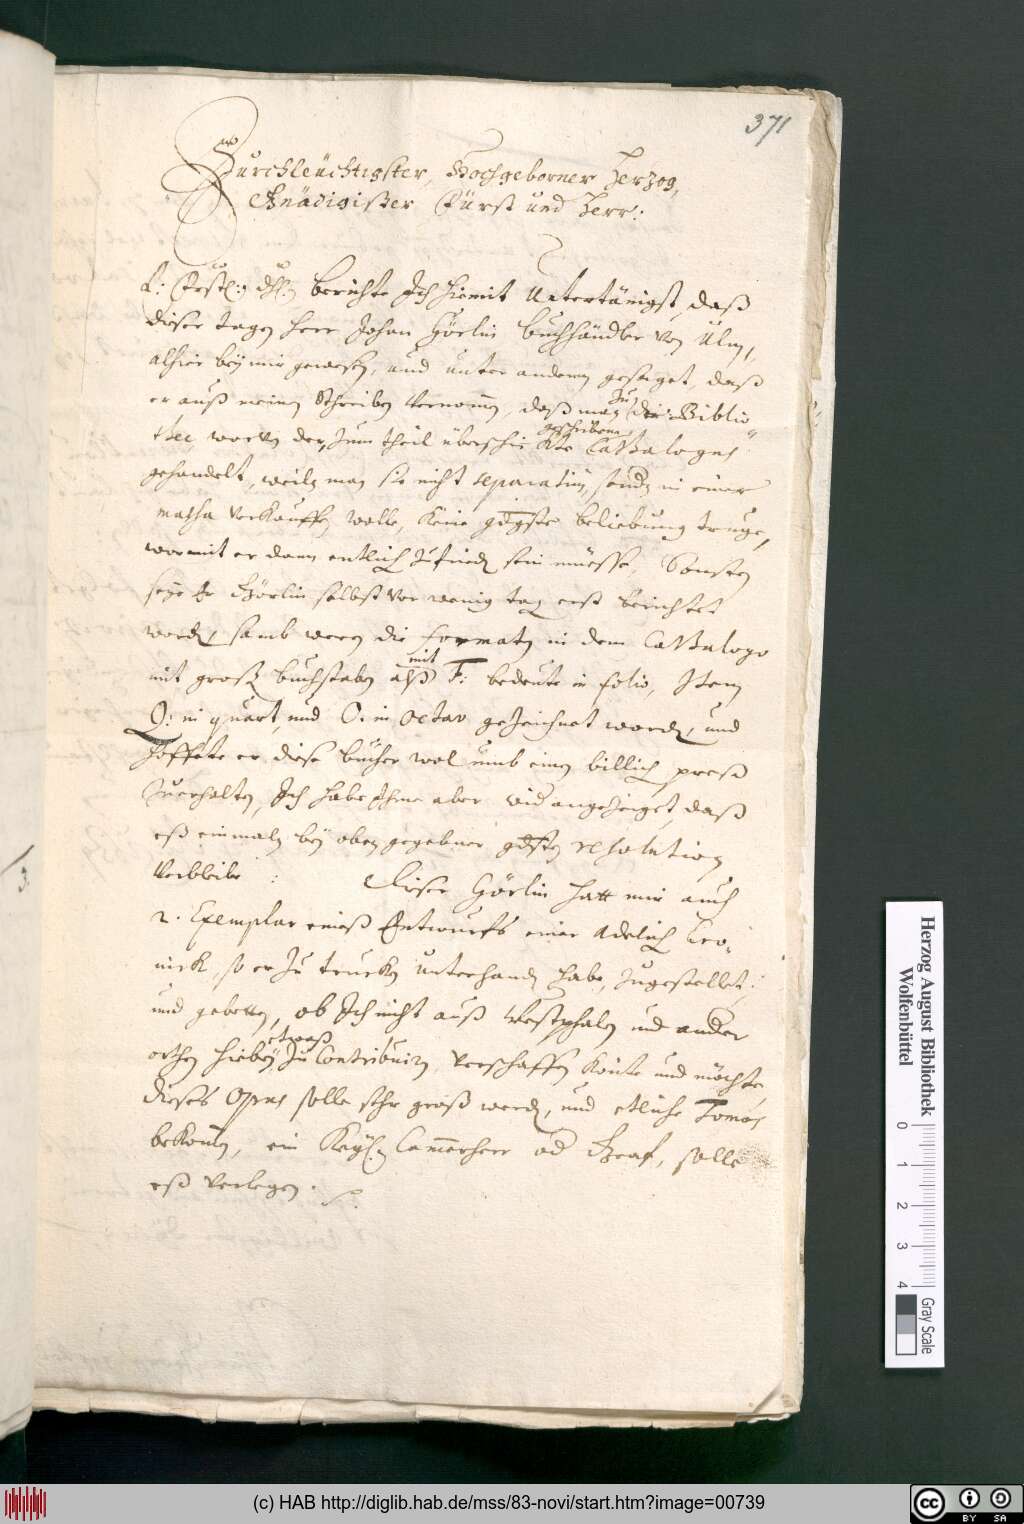 371
Durchleüchtigster, Hochgeborner Herzog,
Gnädigister Fürst und Herr:
E: Frstl: dhl: berichte Ich hiemit Untertänigst, daß
dieser tagen herr Johan Görlin buchhändler von Ulm,
alhier bey mir gewesen, und unter anderm gesaget, daß
er auß meinem Schreiben vernommen, daß man zu der Biblio-
thec, worvon der, zum theil überschickte geschribene Cathalogus
gehandelt, weiln man sie nicht separatim, sondern in einer
massa verkauffen wolle, keine gdgste beliebung truge,
wormit er dann entlich zufrieden sein müesse. Sonsten
seye Er Görlin selbst vor wenig tagen erst berichtet
worden, samb weren die formaten in dem Cathalogo
mit großen buchstaben alß mit F: bedeute in folio, Item
Q: in quart, und O. in octav gezeichnet worden, und
hoffete er, diese bücher wol umb einen billichen preiß
zuerhalten, Ich habe Ihme aber angezeiget, daß
eß einmaln bey oben gegebner gdgsten resolution
verbleibe: Dieser Görlin hatt mir auch
2. Exemplar eineß Entwurfs einer Adelich Cro-
nick, so er zu trucken unterhanden habe, zugestellet,
und gebetten, ob Ich nicht auß Westphalen und ander
orthen hiebey etwaß zu Contribuirn, verschaffen könte und möchte
dieses Opus solle sehr groß werden, und etliche Tomos
bekommen, ein Keyß. Cammerherr oder Graf, solle
eß verlegen.
3.
Herzog August Bibliothek
Wolfenbüttel
0 1 2 3 4
Gray Scale
(c) HAB http://diglib.hab.de/mss/83-novi/start.htm?image=00739
cc BY SA